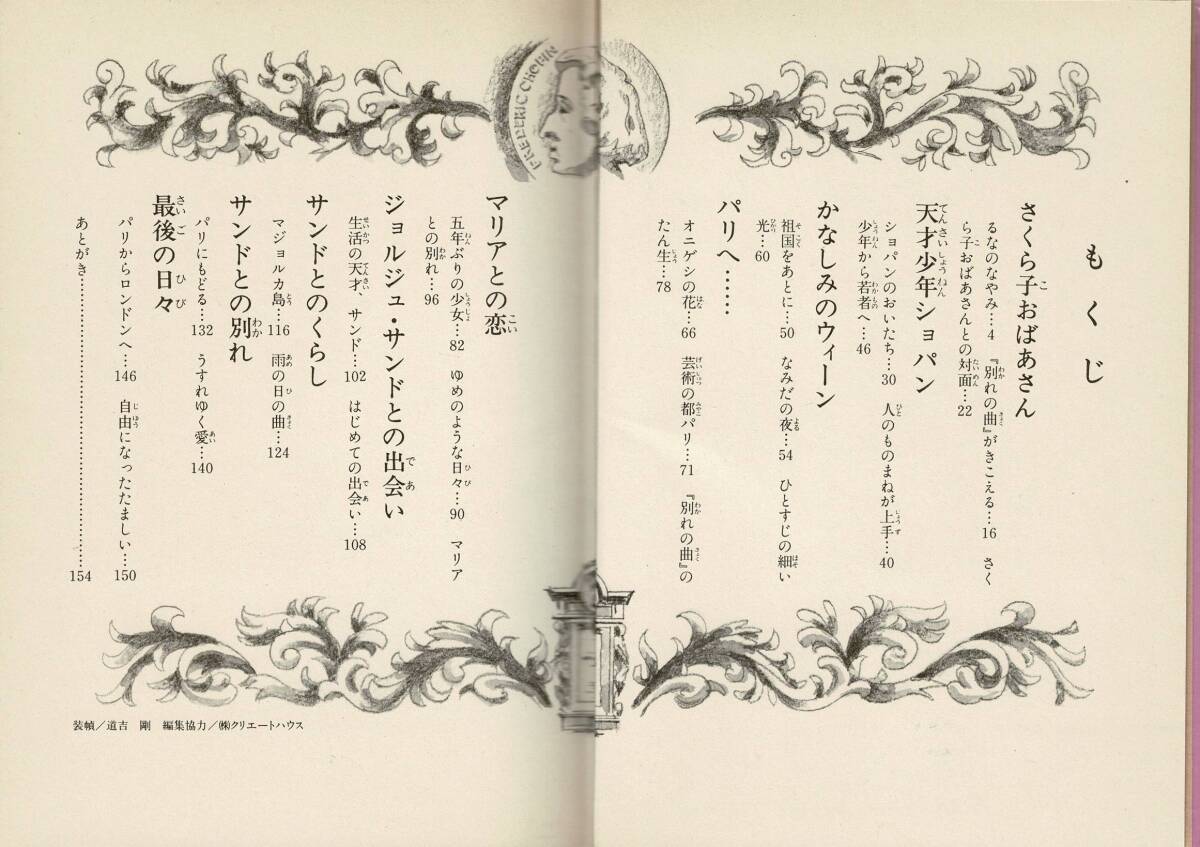 FREDERIC CHOPIN
もくじ
さくら子おばあさん
るなのなやみ…4　『別れの曲』がきこえる…16　さく
ら子おばあさんとの対面…22
天才少年ショパン
ショパンのおいたち…30　人のものまねが上手…40
少年から若者へ…46
かなしみのウィーン
祖国をあとに…50　なみだの夜…54　ひとすじの細い
光…60
パリへ……
オニゲシの花…66　芸術の都パリ…71　『別れの曲』の
たん生…78
マリアとの恋
五年ぶりの少女…82　ゆめのような日々…90　マリア
との別れ…96
ジョルジュ・サンドとの出会い
生活の天才、サンド…102　はじめての出会い…108
サンドとのくらし
マジョルカ島…116　雨の日の曲…124
サンドとの別れ
パリにもどる…132　うすれゆく愛…140
最後の日々
パリからロンドンへ…146　自由になったたましい…150
あとがき……………………………………154
装幀／道吉　剛　編集協力／㈱クリエートハウス